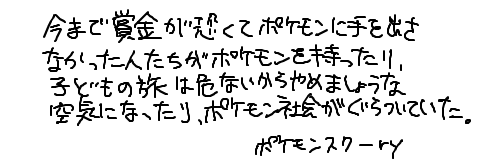 今まで賞金が恐くてポケモンに手を出さ
なかった人たちがポケモンを持ったり、
子どもの旅は危ないからやめましょうな
空気になったり、ポケモン社会がぐらついていた。
ポケモンスクーry